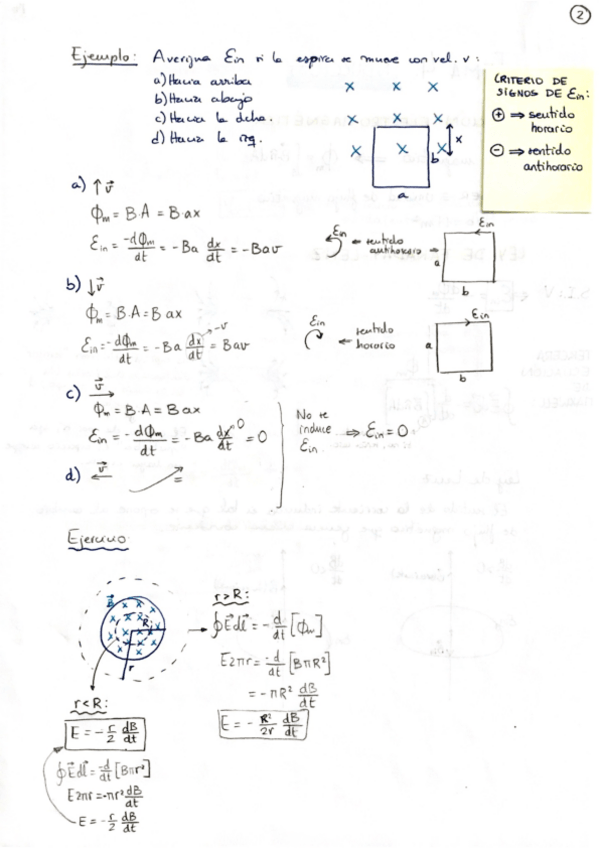 2
Ejemplo: Averigua Ein si la espira se mueve con vel. v:
a) Hacia arriba
b) Hacia abajo
c) Hacia la dcha.
d) Hacia la izq.
x x x
x x x
x x x
x
b
a
CRITERIO DE
SIGNOS DE Ein:
⊕ ⇒ sentido
horario
⊖ ⇒ sentido
antihorario
a) ↑ v⃗
ϕm = B·A = B·ax
Ein = -dϕm/dt = -Ba dx/dt = -Bav
Ein
← sentido
antihorario →
Ein
a
b
b) ↓ v⃗
ϕm = B·A = B ax
Ein = -dϕm/dt = -Ba dx/dt → -v = Bav
Ein
← sentido
horario
Ein
a
b
c) v⃗ →
ϕm = B·A = B ax
Ein = - dϕm/dt = -Ba dx/dt → 0 = 0
No se
induce
Ein
⇒ Ein = 0
d) ← v⃗
=
Ejercicio
B⃗
R
r
r > R:
∮E⃗dl⃗ = - d/dt [ϕm]
E2πr = -d/dt [BπR²]
= -πR² dB/dt
E = - R²/2r dB/dt
r < R:
E = - r/2 dB/dt
∮E⃗dl⃗ = -d/dt [Bπr²]
E2πr = -πr² dB/dt
E = - r/2 dB/dt